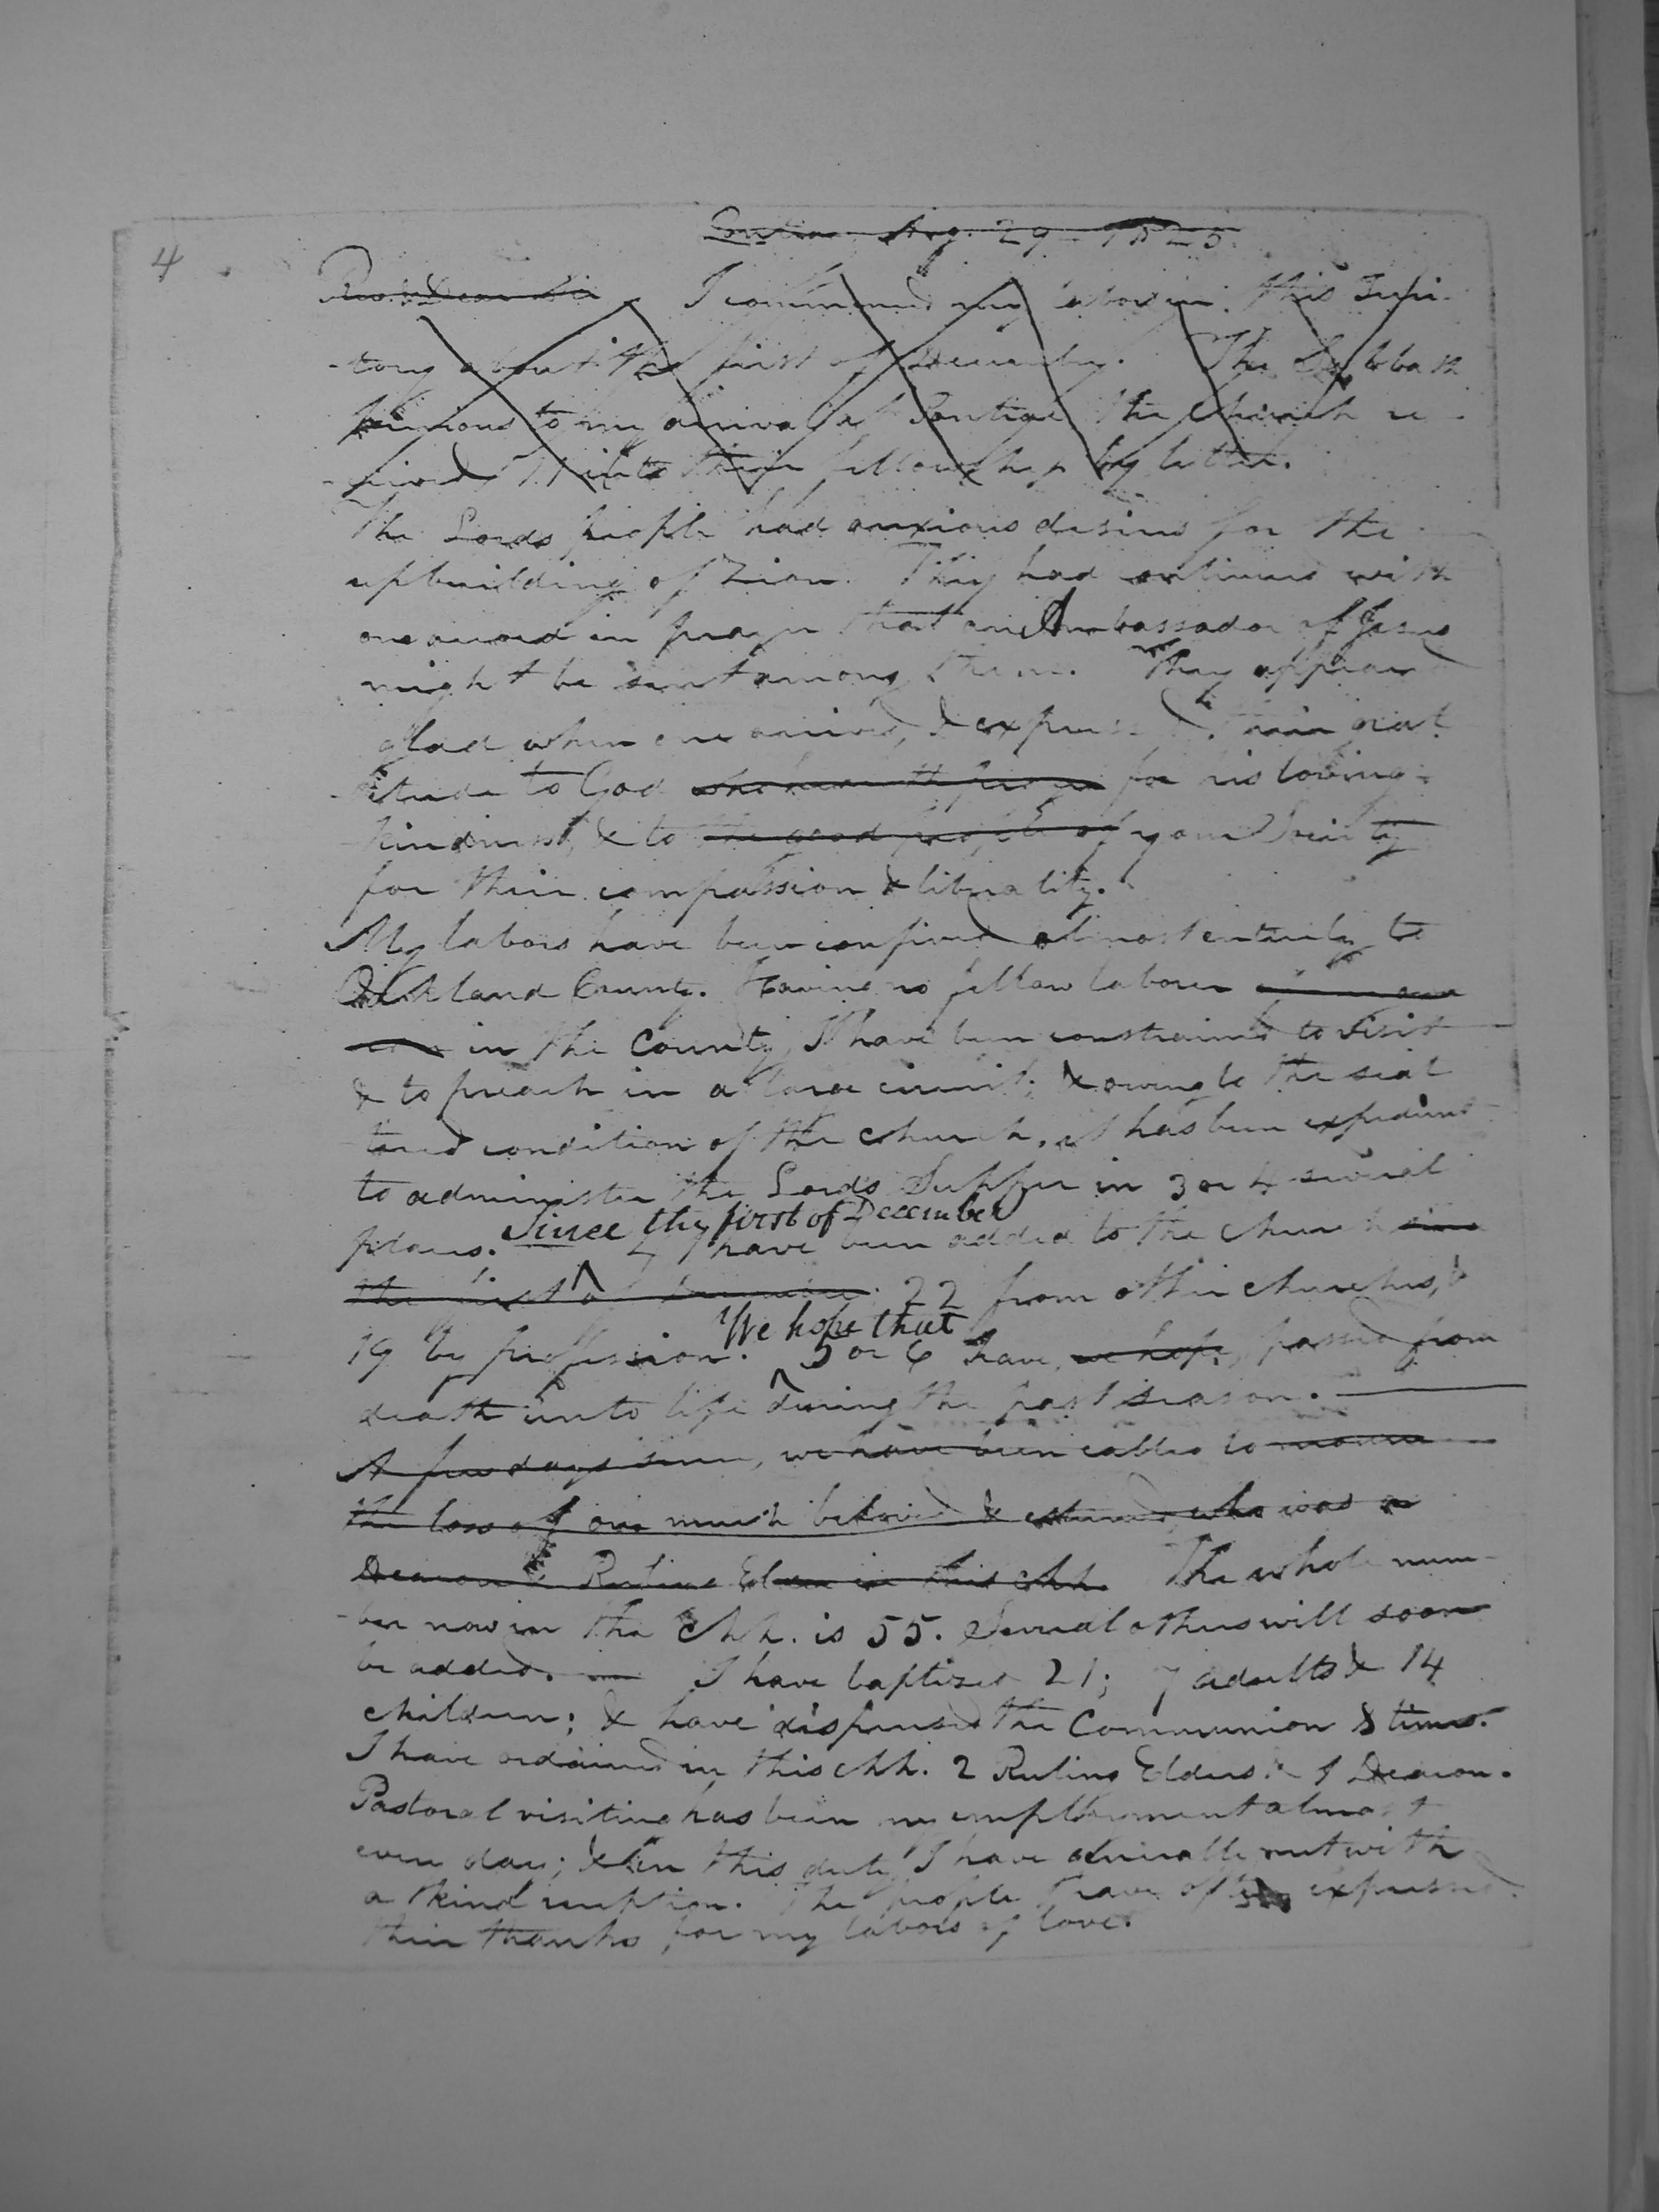 4
Pontiac Aug. 29 - 1825.
Rev. & Dear Sir I commenced my labors in this Terri-
-tory about the first of December. The Sabbath
previous to my arrival at Pontiac the Church re-
-ceived 11 into their fellowship by letter.
The Lords people had anxious desires for the
upbuilding of Zion. They had continued with
one accord in prayer that an Ambassador of Jesus
might be sent among them. They appeared
glad when one arrived, & expressed their grat
-itude to God who heareth prayer for his loving-
kindness, & to the good people of your Society
for their compassion & liberality.
My labors have been confined almost entirely to
Oakland County. Having no fellow laborer
in the County, I have been constrained to visit
& to preach in a large circuit; & owing to the scat
tered condition of the church, it has been expedient
to administer the Lords Supper in 3 or 4 several
Since the first of December
places. 41 have been added to the church since
the first of December 22 from other churches, &
We hope that
19 by profession. 5 or 6 have, we hope, passed from
death unto life during the past season.
A few days since, we have been called to mourn
the loss of one much beloved & esteemed, who was a
Deacon & Ruling Elder in this chh. The whole num-
-ber now in the Chh. is 55. Several others will soon
be added. I have baptized 21; 7 adults & 14
children; & have dispensed the Communion 8 times.
I have ordained in this chh. 2 Ruling Elders & 1 Deacon.
Pastoral visiting has been my employment almost
every day; & in this duty I have generally met with
a kind reception. The people have often expressed
their thanks for my labors of love.